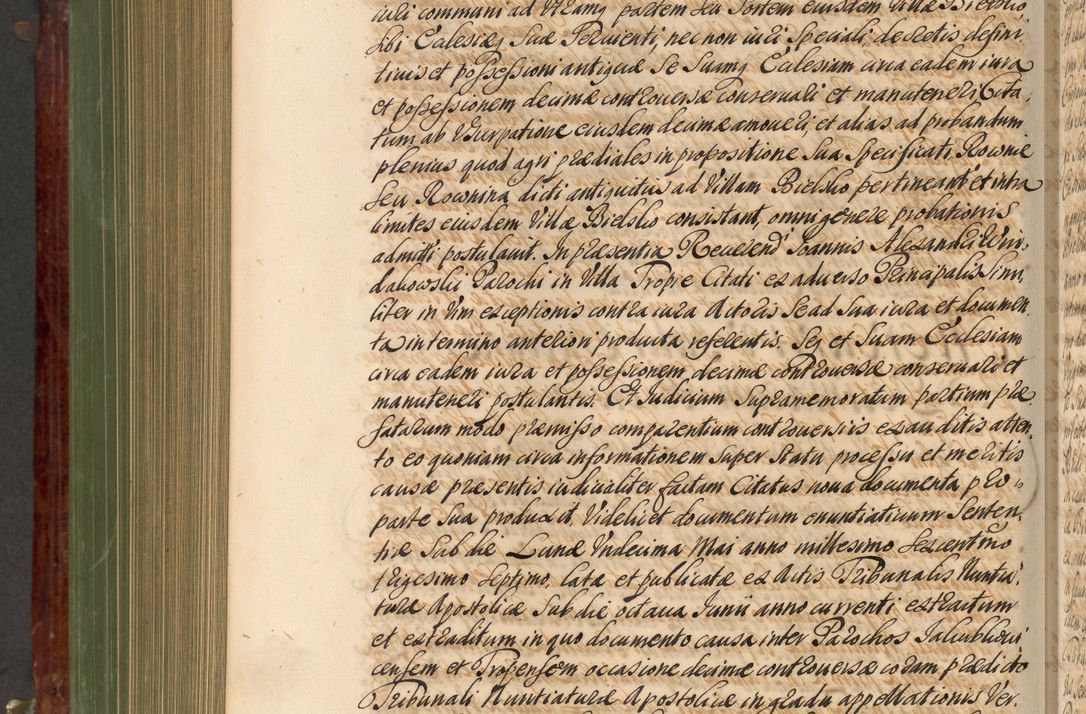 iuri communi ad Utramq partem seu Sortem eiusdem Villæ Bielsko
sibi Eclesiæq Suæ Seruienti, nec non iuri Speciali, decretis defini
tiuis et possessioni antiquæ Se Suamq Ecclesiam circa eadem iura
et possessionem decimæ controuersæ conseruari et manuteneri Cita,
tum ab Vsurpatione eiusdem decimæ amoueri, et alias ad probandum
plenius quod agri prædiales in propositione Sua Specificati Rownie
seu Rownina dicti antiquitus ad Villam Bielsko pertineant et intra
limites eiusdem Villæ Bielsko consistant, omni genere probationis
admitti postulauit. In præsentia Reuerend Joannis Alexandri Win,
dakowski Parochi in Villa Tropie Citati ex aduerso Principalis Simi,
liter in Vim exceptionis contra iura Actoris Se ad Sua iura et documen
ta in termino anteriori producta referentis. Seq et Suam Ecclesiam
circa eadem iura et possessionem decimæ controuersæ conseruari et
manuteneri postulantis. Et Iudicium Supramemoratum partium præ
fatarum modo præmisso comparentium controuersiis exauditis atten
to eo quoniam circa informationem Super Statu processu et meritis
causæ præsentis iudicialiter factam Citatus noua documenta pro
parte Sua produxit, Videlicet documentum enuntiatiuum Senten,
tiæ Sub die Lunæ Vndecima Mai anno millesimo Sexcentimo
trigesimo Septimo, latæ et publicatæ ex Actis Tribunalis Nuntia,
turæ Apostolicæ Sub die octaua Iunii anno currenti extractum
et extraditum in quo documento causa inter Parochos Jakubkoui
censem et Tropensem occasione decimæ controuersæ coram prædicto
Tribunali Nuntiaturæ Apostolicæ in gradu appellationis Ver.